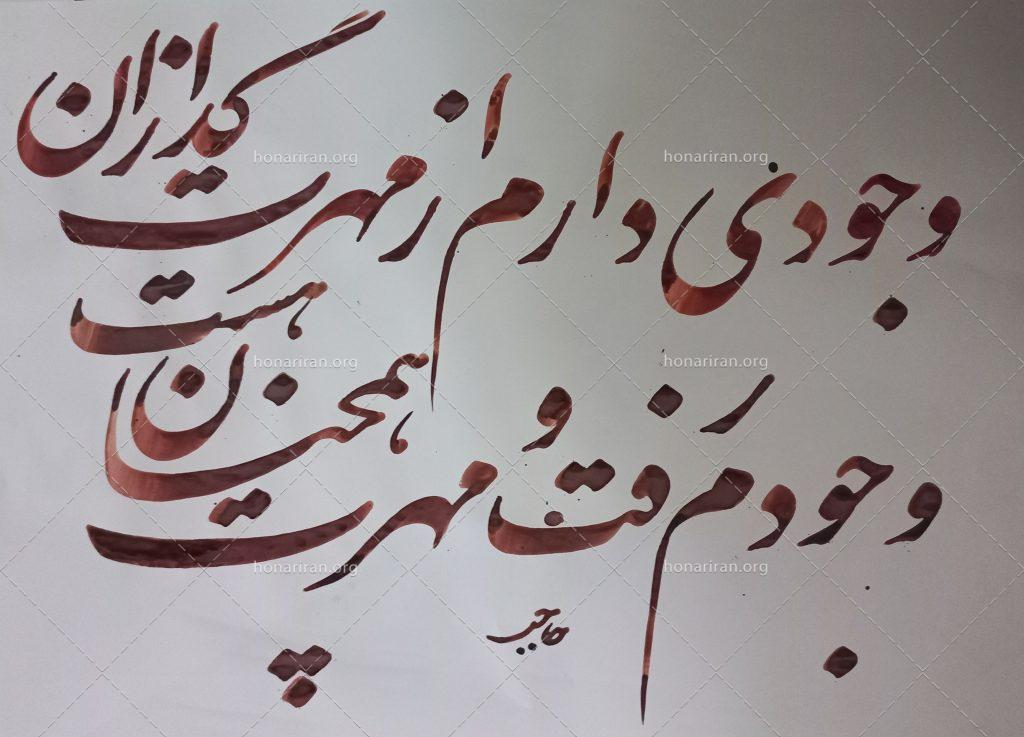 وجودی دارم از مهرت گدازان
وجودم رفت و مهرت همچنان هست
honariran.org honariran.org
honariran.org honariran.org
honariran.org honariran.org